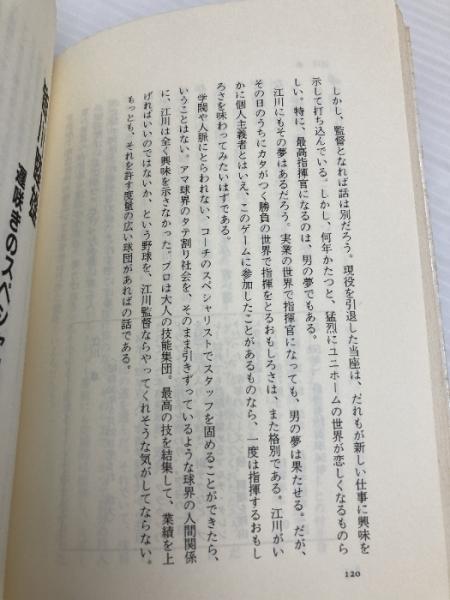 しかし、監督となれば話は別だろう。現役を引退した当座は、だれもが新しい仕事に興味を
示して打ち込んでいる。しかし、何年かたつと、猛烈にユニホームの世界が恋しくなるものら
しい。特に、最高指揮官になるのは、男の夢でもある。
江川にもその夢はあるだろう。実業の世界で指揮官になっても、男の夢は果たせる。だが、
その日のうちにカタがつく勝負の世界で指揮をとるおもしろさは、また格別である。江川がい
かに個人主義者とはいえ、このゲームに参加したことがあるものなら、一度は指揮するおもし
ろさを味わってみたいはずである。
学閥や人脈にとらわれない、コーチのスペシャリストでスタッフを固めることができたら、
いうことはない。アマ球界のタテ割り社会を、そのまま引きずっているような球界の人間関係
に、江川は全く興味を示さなかった。プロは大人の技能集団。最高の技を結集して、業績を上
げればいいのではないか、という野球を、江川監督ならやってくれそうな気がしてならない。
もっとも、それを許す度量の広い球団があればの話である。
120
遅咲きのスペシャ